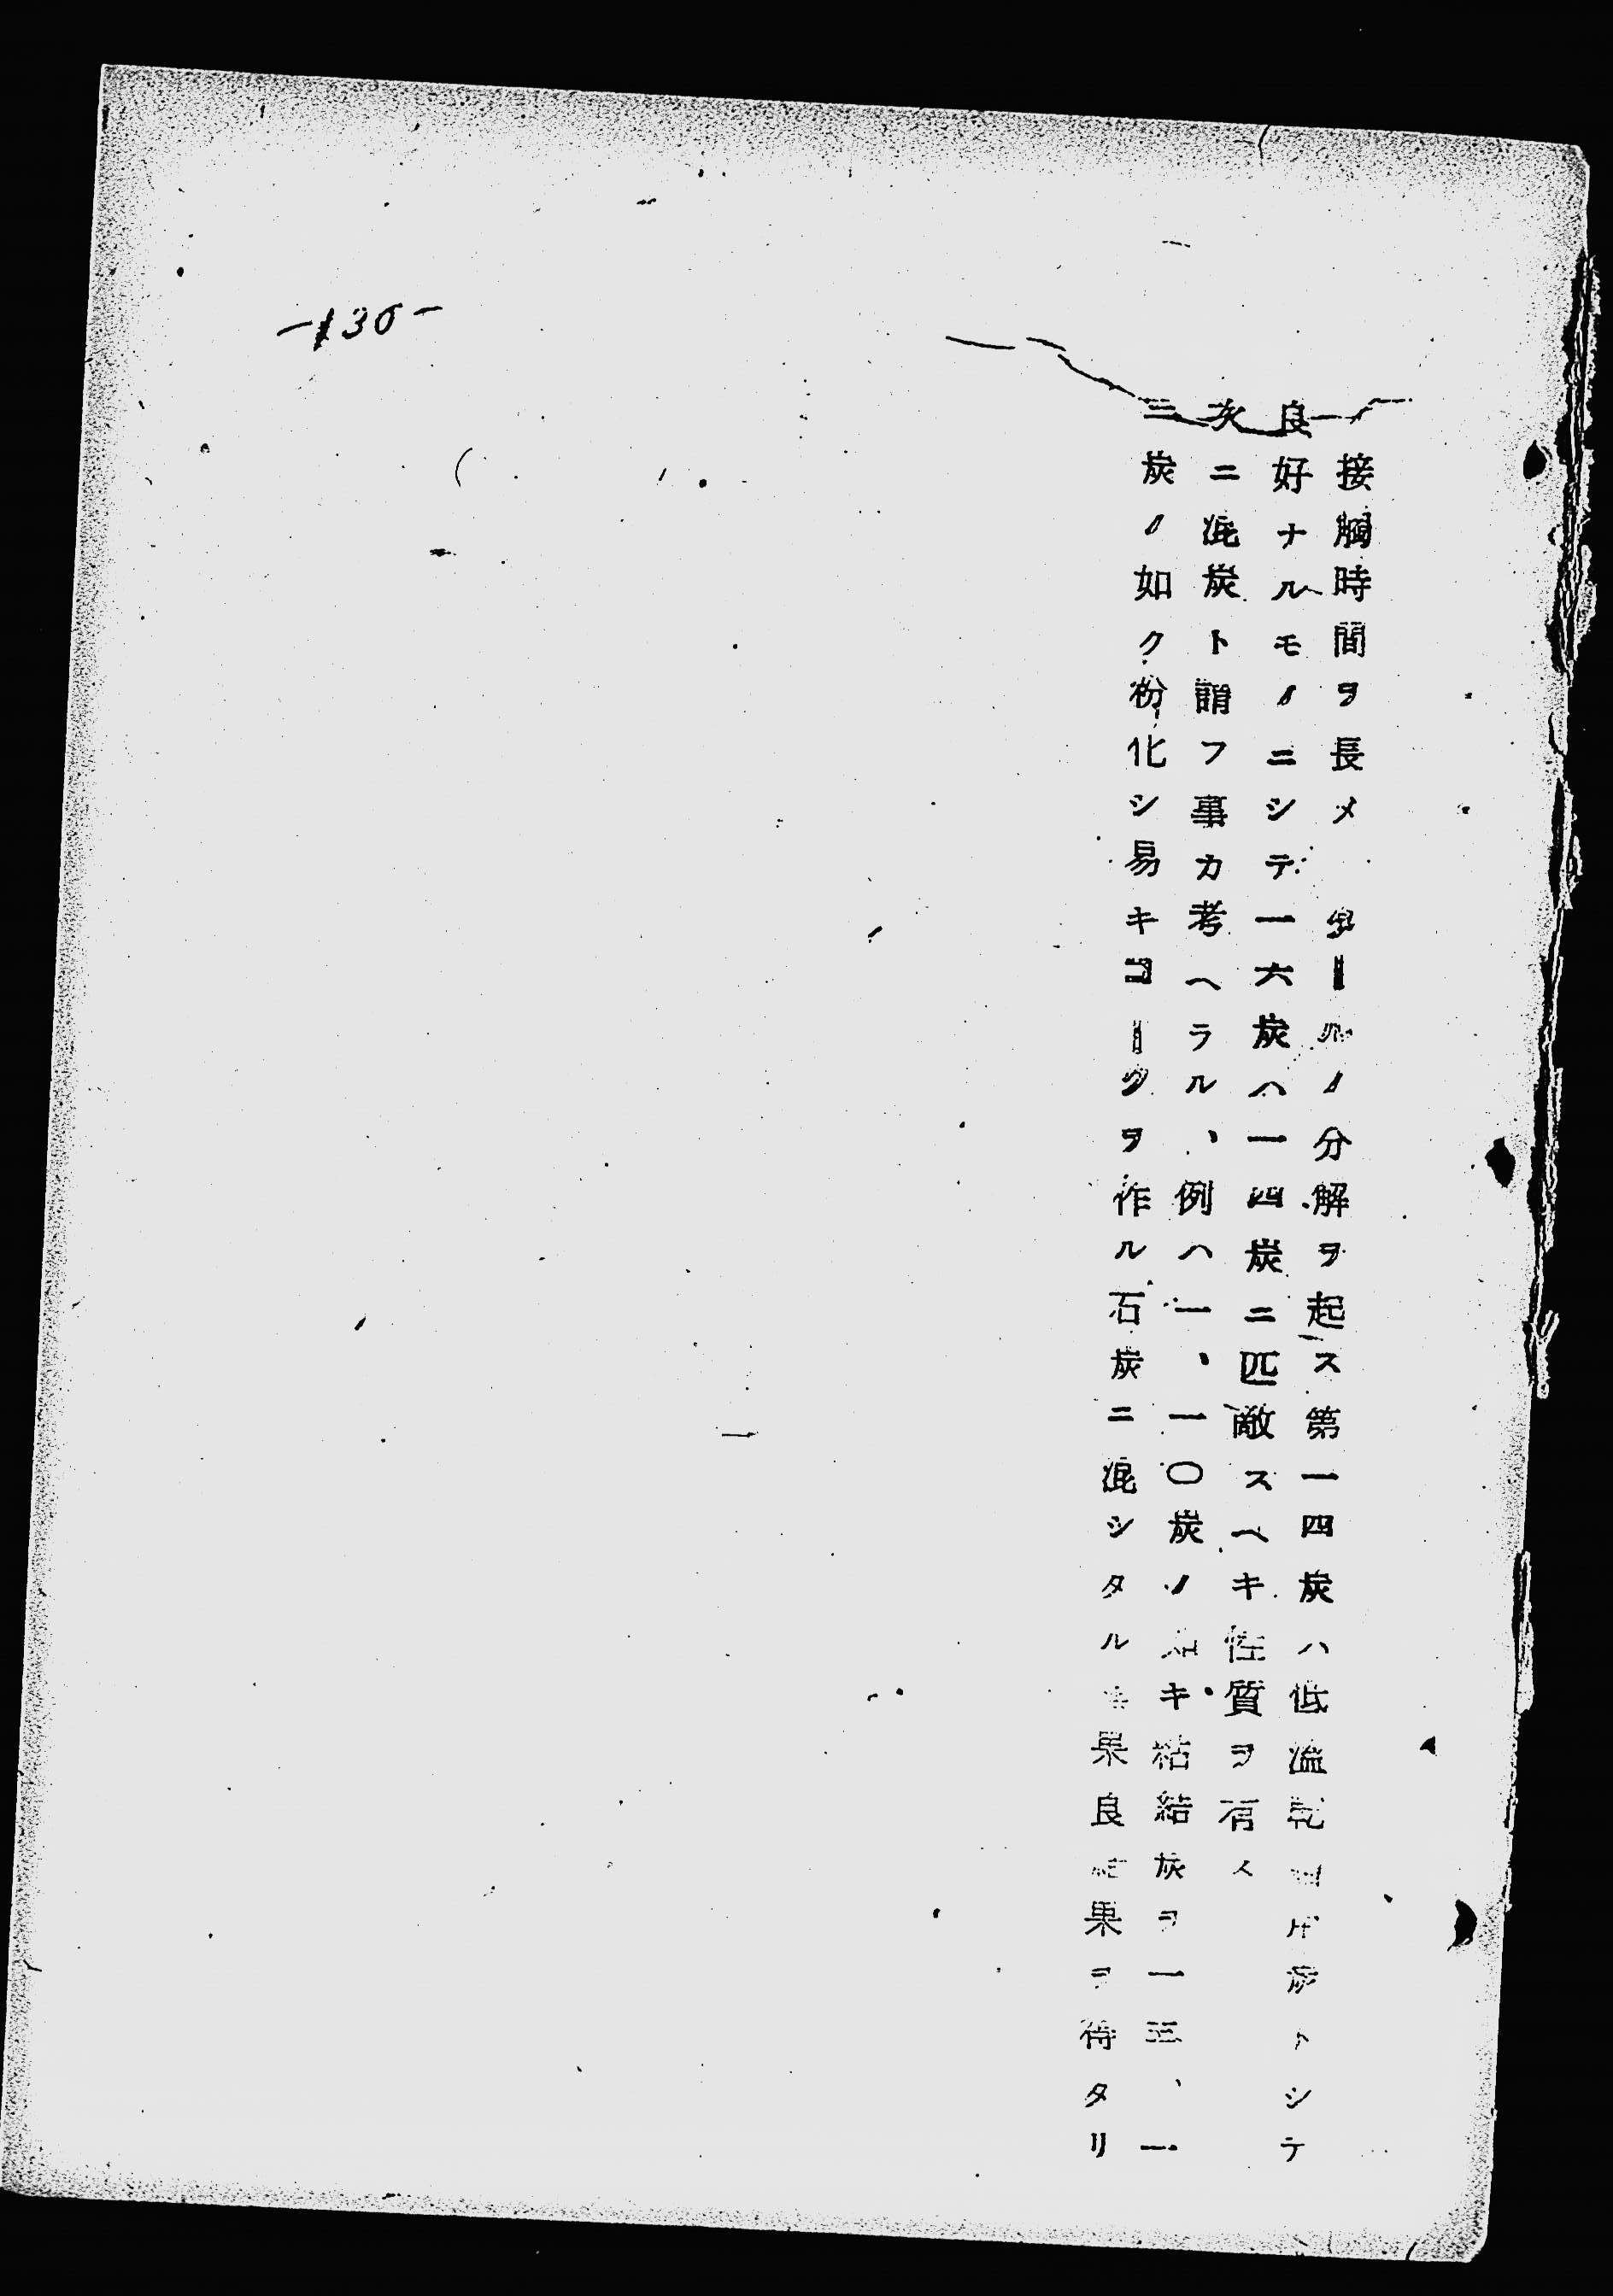 接觸時間ヲ長メ タールノ分解ヲ起ス第一四炭ハ低溫乾用炭トシテ
良好ナルモノニシテ一六炭ハ一四炭ニ匹敵スヘキ性質ヲ有ス
次ニ混炭ト謂フ事カ考ヘラル、例ハ一、一〇炭ノ如キ粘結炭ヲ一三、一
三炭ノ如ク粉化シ易キコークヲ作ル石炭ニ混シタル果良果ヲ得タリ
-136-